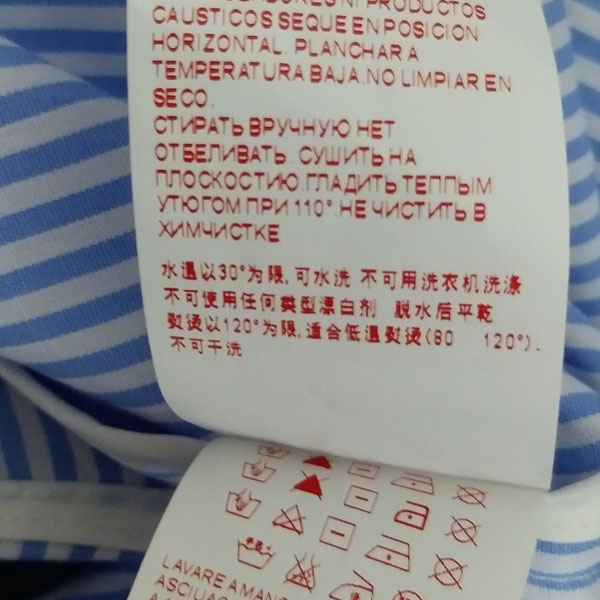 NI PRODUCTOS
CAUSTICOS SEQUE EN POSICION
HORIZONTAL PLANCHAR A
TEMPERATURA BAJA.NO LIMPIAR EN
SECO.
СТИРАТЬ ВРУЧНУЮ НЕТ
ОТБЕЛИВАТЬ СУШИТЬ НА
ПЛОСКОСТИЮ.ГЛАДИТЬ ТЕППЫМ
УТЮГОМ ПРИ 110°.НЕ ЧИСТИТЬ В
ХИМЧИСТКЕ
水温以30°为限,可水洗 不可用洗衣机洗涤
不可使用任何类型漂白剂 脱水后平乾
熨烫以120°为限,适合低温熨烫(80 120°).
不可干洗
LAVARE A MANO